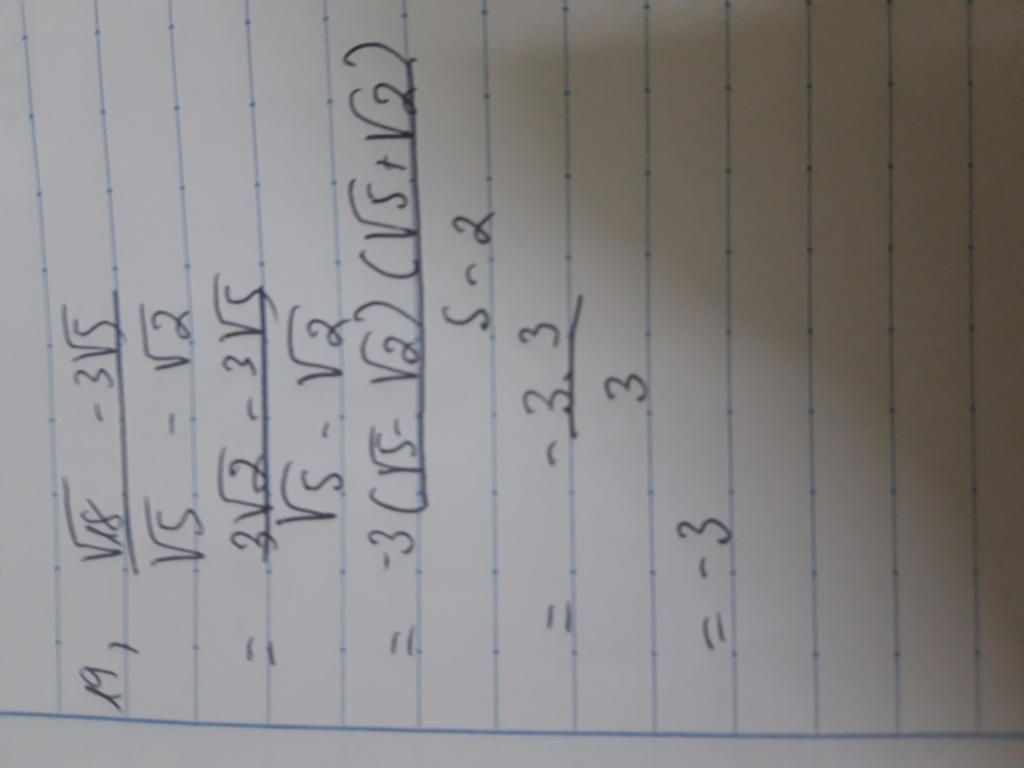 19, (√18 - 3√5)/(√5 - √2)
= (3√2 - 3√5)/(√5 - √2)
= (-3(√5 - √2)(√5 + √2))/(5 - 2)
= (-3.3)/3
= -3